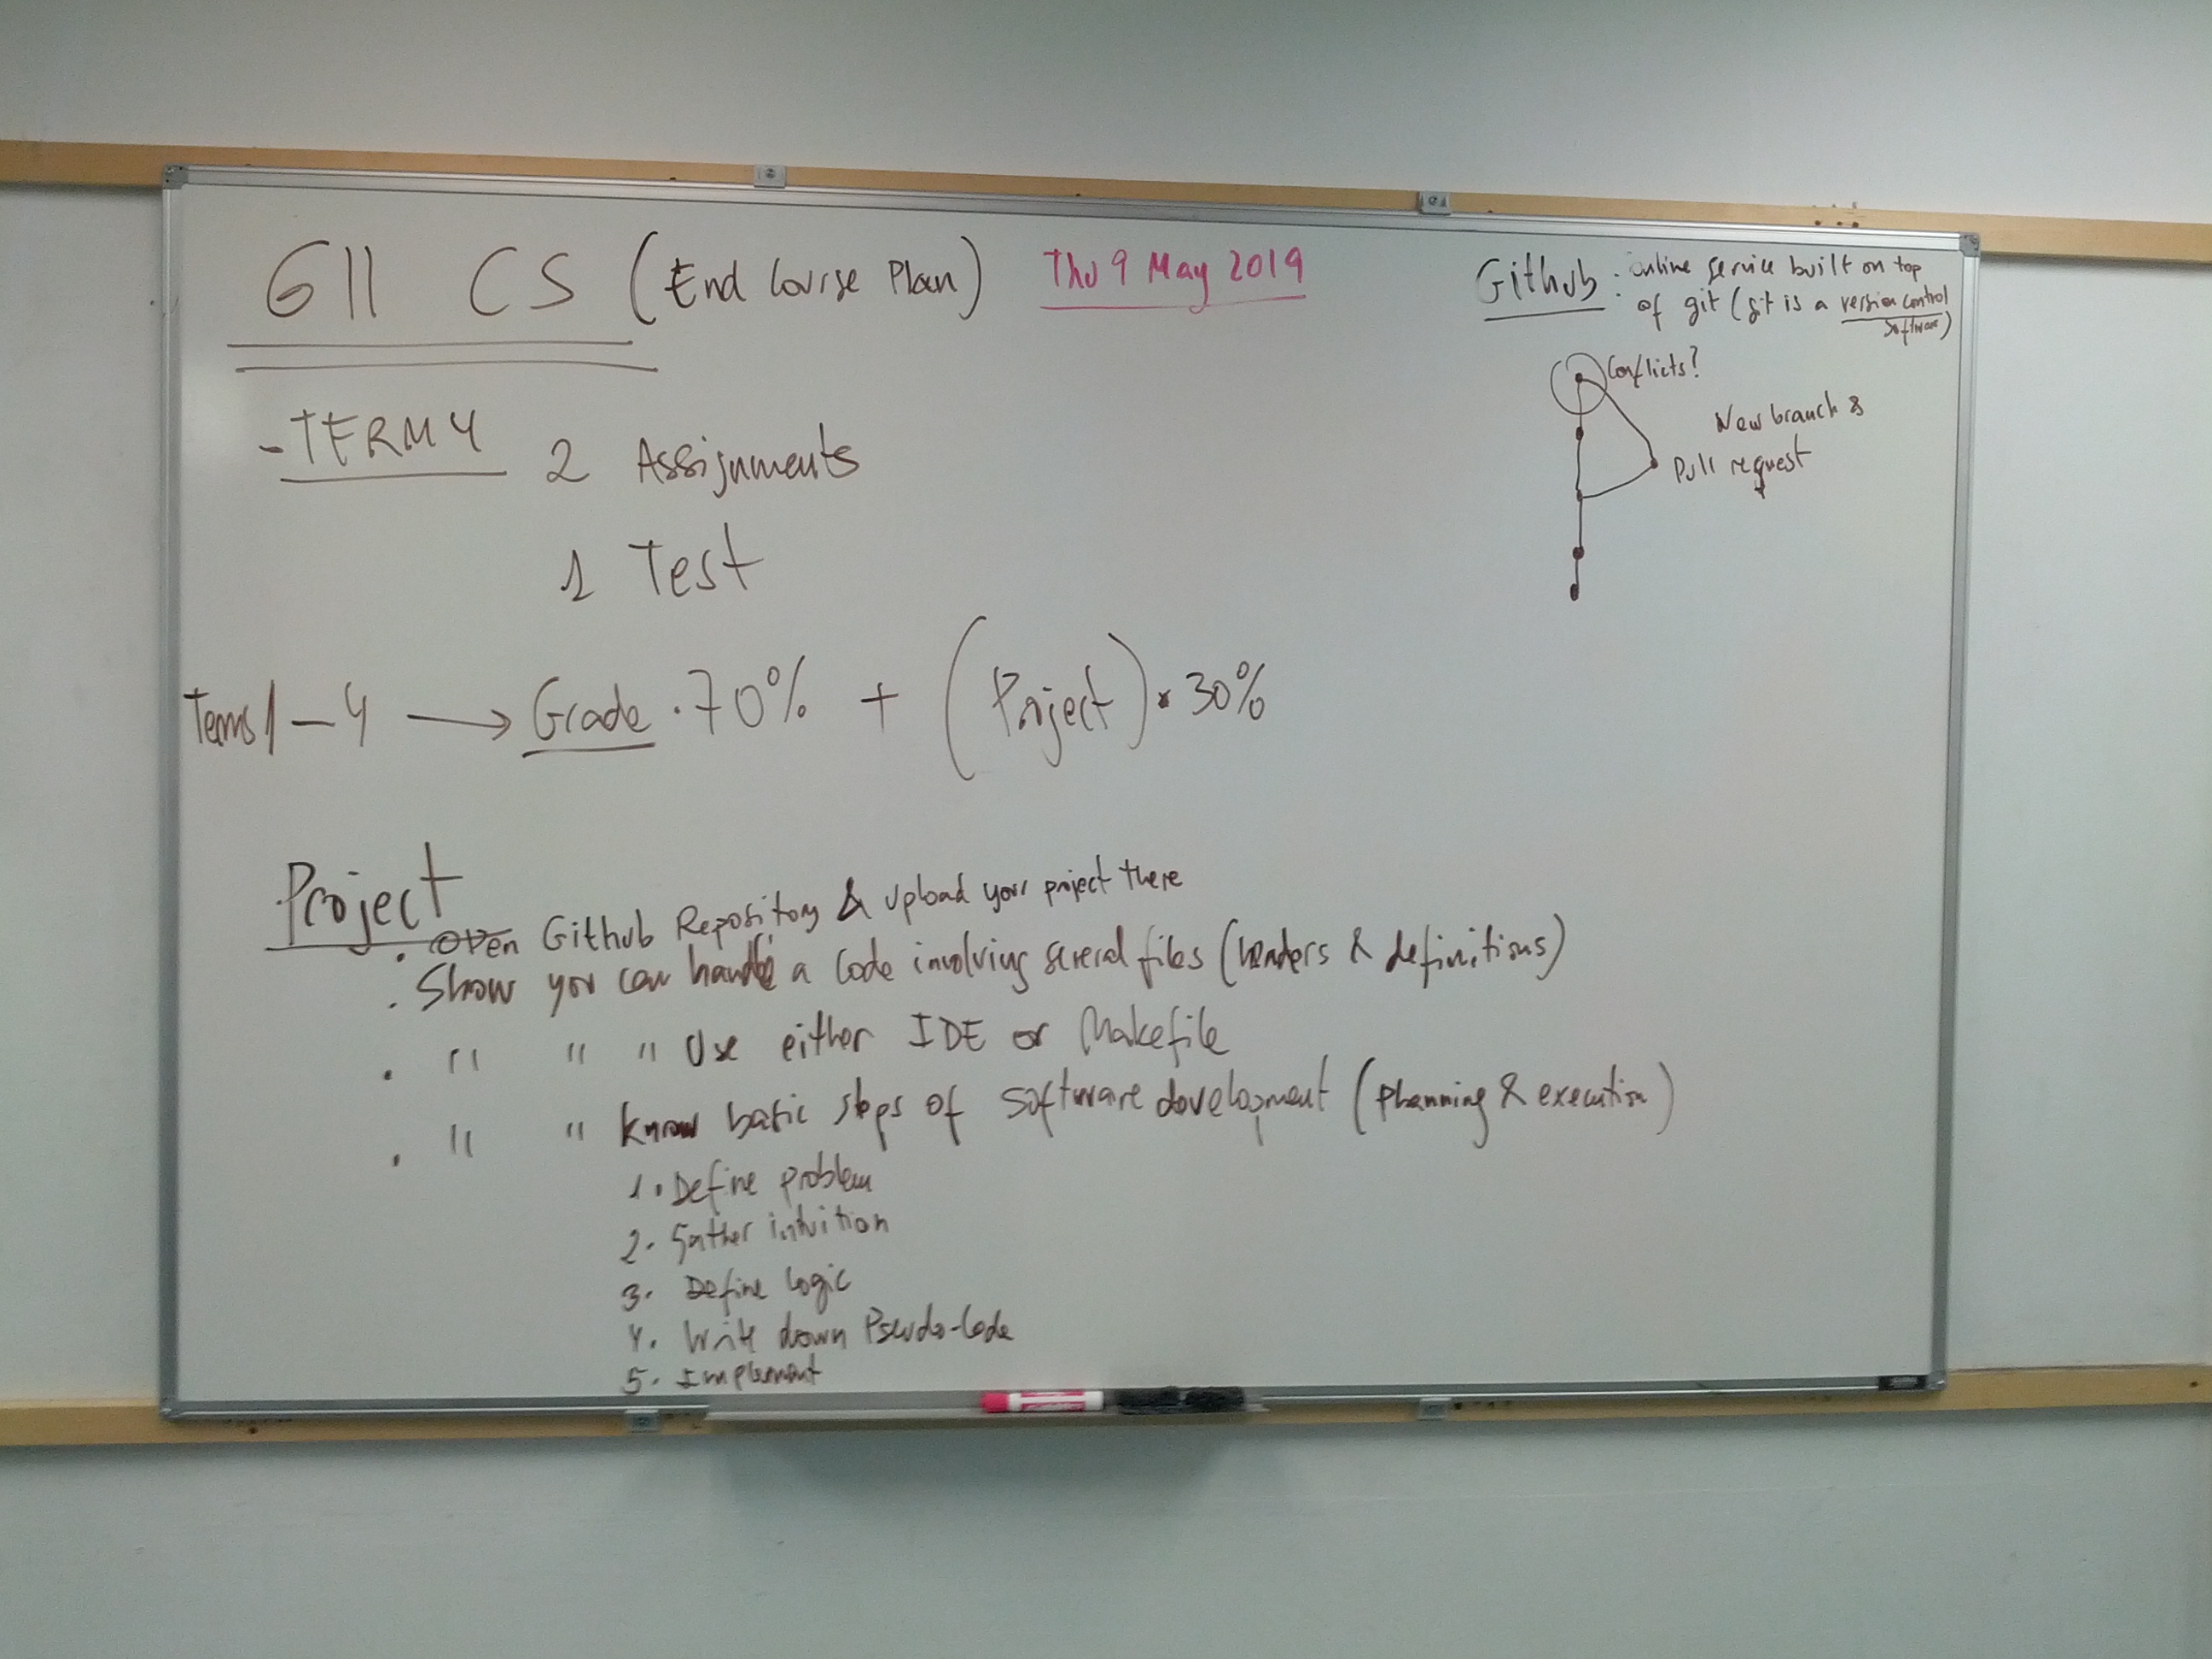 G11 CS (End Course Plan) Thu 9 May 2019
Github: online service built on top
of git (git is a version control
software)
Conflicts?
New branch &
Pull request
- TERM 4
2 Assignments
1 Test
Terms 1 — 4 → Grade · 70% + (Project) · 30%
Project
· Open Github Repository & upload your project there
· Show you can handle a code involving several files (headers & definitions)
· " " " Use either IDE or Makefile
· " " know basic steps of software development (Planning & execution)
1. Define problem
2. Gather intuition
3. Define logic
4. Write down Pseudo-Code
5. Implement